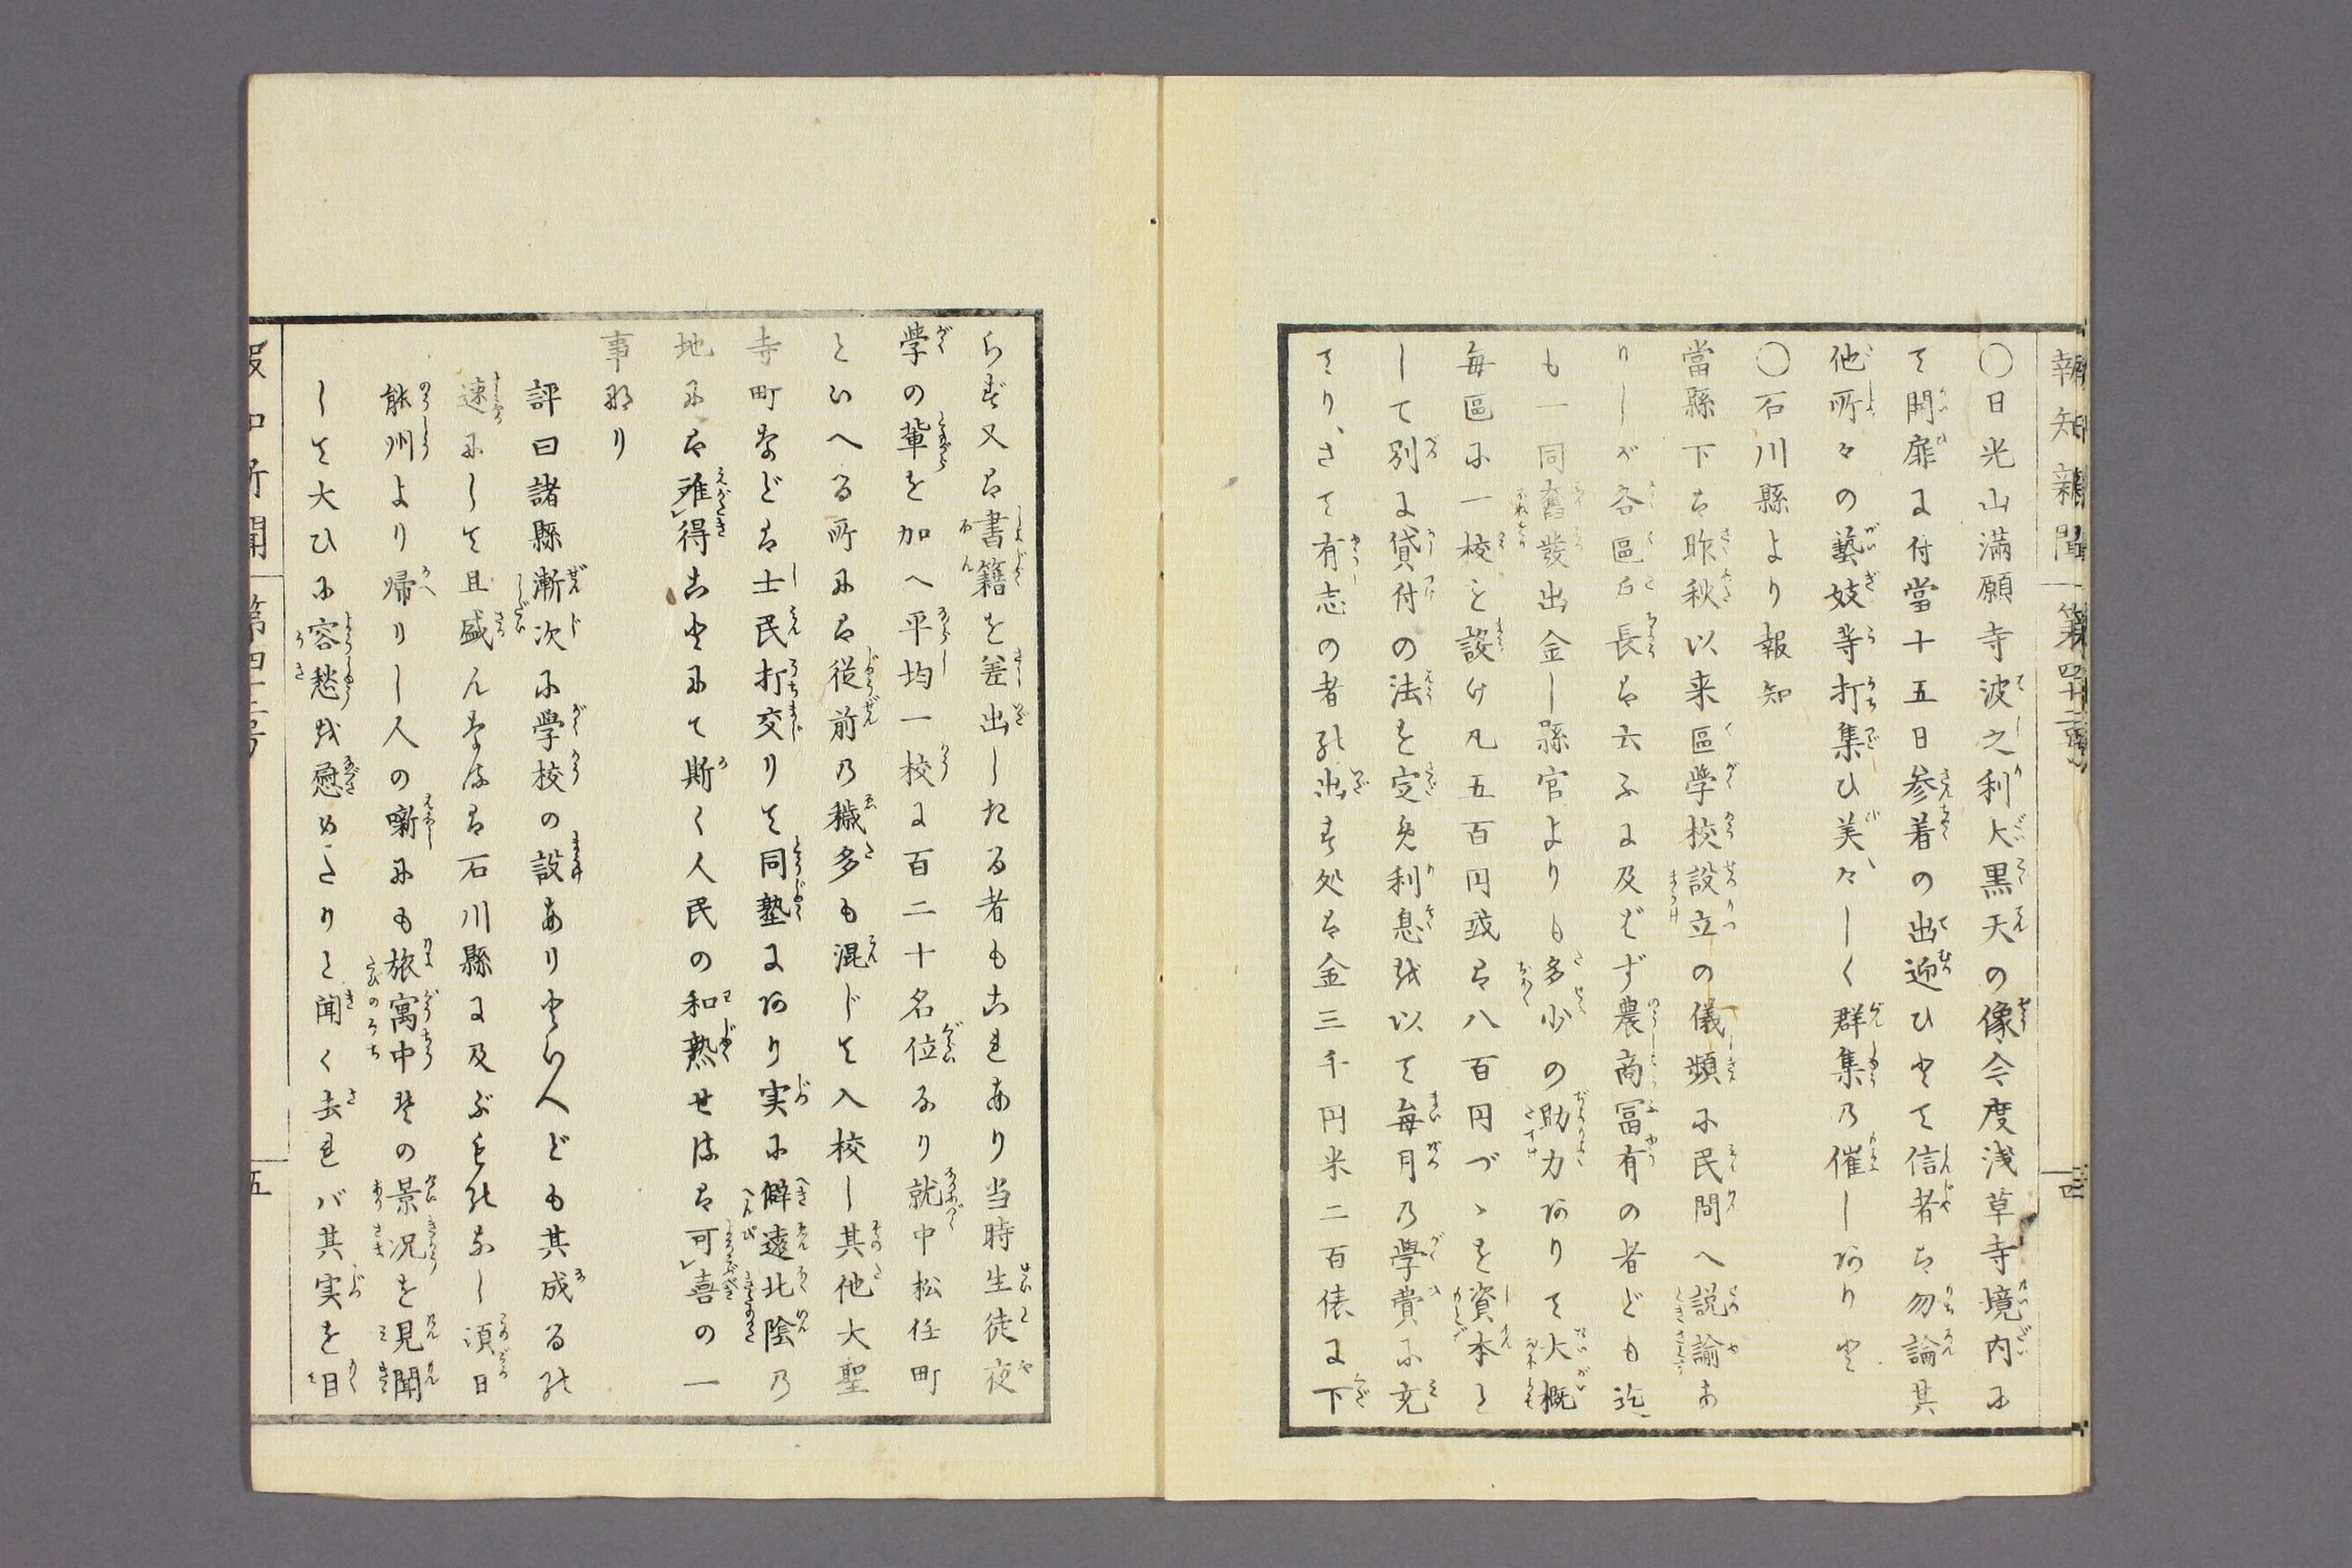 報知新聞 第四十二号 四
〇日光山滿願寺波之利大黒天の像今度浅草寺境内に
て開扉に付當十五日参着の出迎ひとて信者は勿論其
他所々の藝妓等打集ひ美々しく群集の催しありと
〇石川縣より報知
當縣下は昨秋以来區学校設立の儀頻に民間へ説諭あ
りしが各區戸長は云ふに及ばず農商冨有の者ども迄
も一同奮發出金し縣官よりも多少の助力ありて大概
毎區に一校を設け凡五百円或は八百円づゝを資本と
して別に貸付の法を定め利息を以て毎月の學費に充
てり、さて有志の者の出す処は金三千円米二百俵に下
らず又は書籍を差出したる者もこれあり当時生徒夜
学の輩を加へ平均一校に百二十名位なり就中松任町
といへる所には従前の穢多も混じて入校し其他大聖
寺町などは士民打交りて同塾にあり実に僻遠北陰の
地には難得ことにて斯く人民の和熟せるは可喜の一
事なり
評曰諸縣漸次に學校の設ありといへども其成るの
速にして且盛んなるは石川縣に及ぶものなし頃日
能州より帰りし人の噺にも旅寓中其の景况を見聞
して大ひに容愁を慰めたりと聞く去れバ其実を目
報知新聞 第四十二号 五